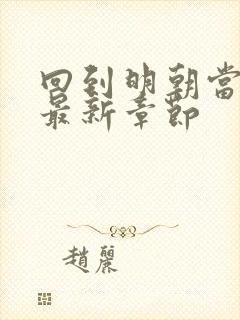 回到明朝當
最新章節
趙麗